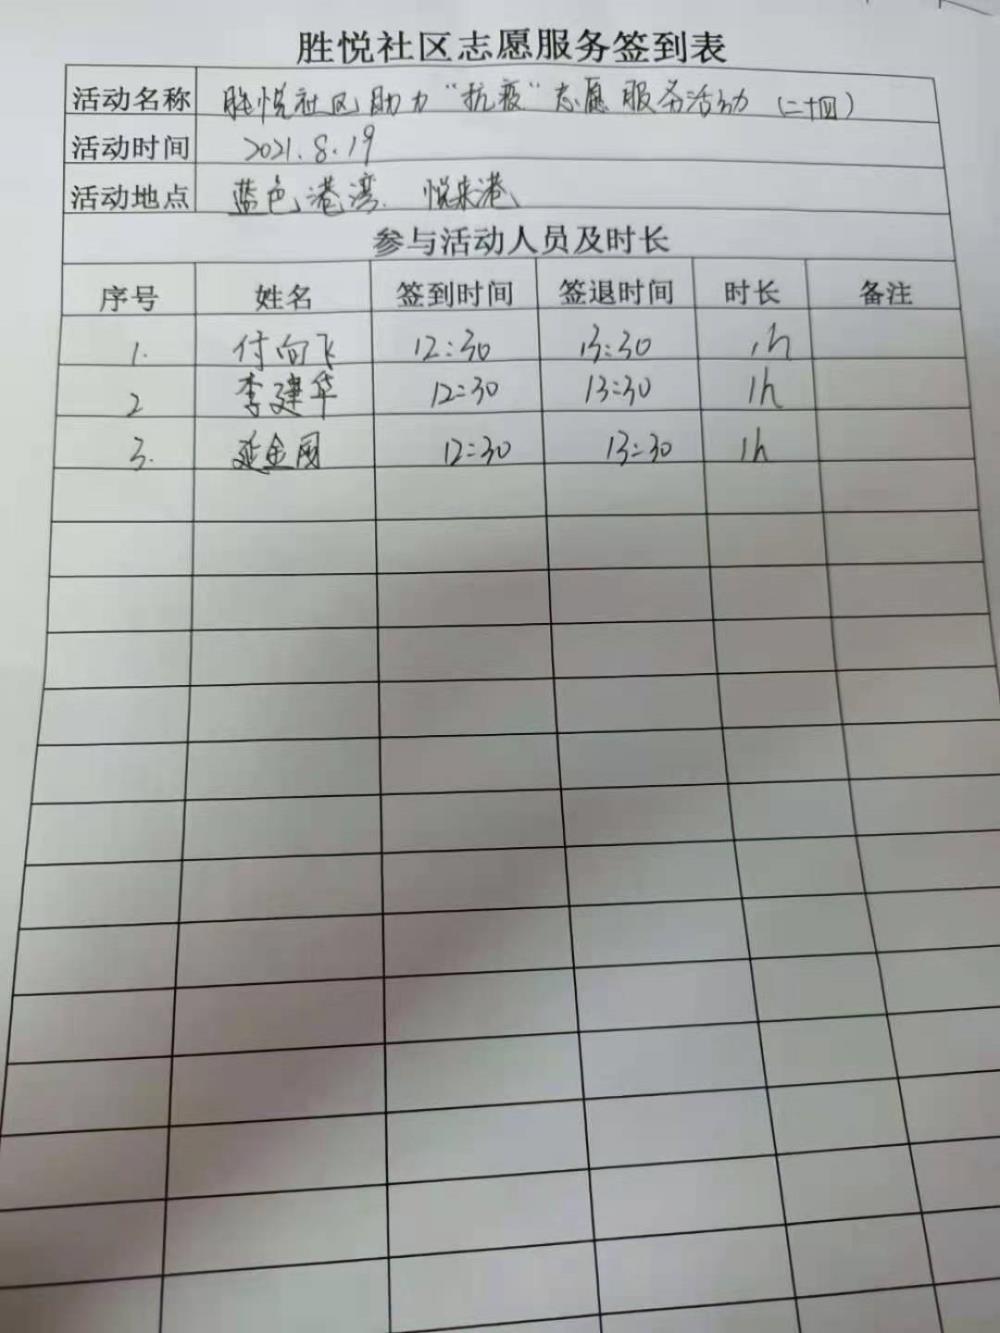 胜悦社区志愿服务签到表
活动名称 胜悦社区助力“抗疫”志愿服务活动（二十四）
活动时间 2021.8.19
活动地点 蓝色港湾. 悦来港
参与活动人员及时长
序号 姓名 签到时间 签退时间 时长 备注
1. 付向飞 12:30 13:30 1h
2 李建华 12:30 13:30 1h
3. 延金国 12:30 13:30 1h